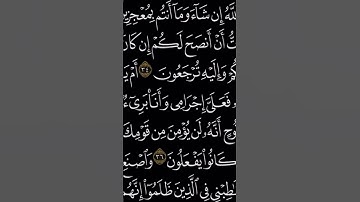 للَّهُ إِن شَآءَ وَمَآ أَنتُم بِمُعْجِزِيـ
تُّ أَنْ أَنصَحَ لَكُمْ إِن كَانَ
كُمْ وَإِلَيْهِ تُرْجَعُونَ ٣٤ أَمْ يَـ
فَعَلَىَّ إِجْرَامِى وَأَنَا۠ بَرِىٓءٌ
وحٍ أَنَّهُۥ لَن يُؤْمِنَ مِن قَوْمِكَ
كَانُوا۟ يَفْعَلُونَ ٣٦ وَٱصْنَعِ
ـطِبْنِى فِى ٱلَّذِينَ ظَلَمُوٓا۟ إِنَّهُم